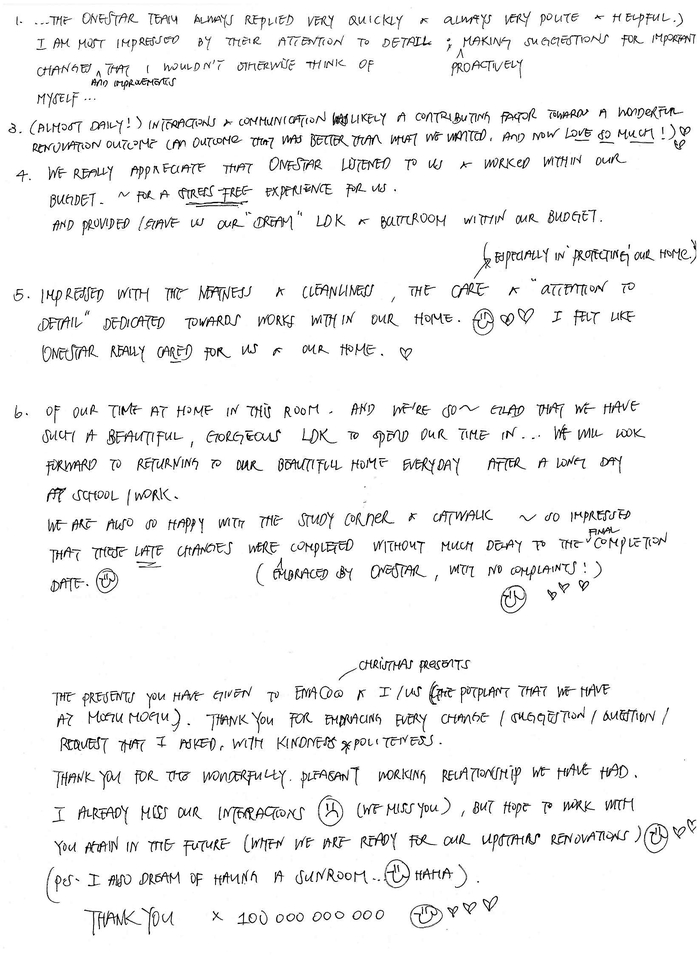 1. ...THE ONESTAR TEAM ALWAYS REPLIED VERY QUICKLY & ALWAYS VERY POLITE & HELPFUL.)
I AM MOST IMPRESSED BY THEIR ATTENTION TO DETAIL; MAKING SUGGESTIONS FOR IMPORTANT
PROACTIVELY
CHANGES, THAT I WOULDN'T OTHERWISE THINK OF
AND IMPROVEMENTS
MYSELF...
3. (ALMOST DAILY!) INTERACTIONS & COMMUNICATION WAS LIKELY A CONTRIBUTING FACTOR TOWARDS A WONDERFUL
RENOVATION OUTCOME (AN OUTCOME THAT WAS BETTER THAN WHAT WE WANTED, AND NOW LOVE SO MUCH!) ♡♡
4. WE REALLY APPRECIATE THAT ONESTAR LISTENED TO US & WORKED WITHIN OUR
BUGDET. ~ FOR A STRESS-FREE EXPERIENCE FOR US.
AND PROVIDED/GAVE US OUR "DREAM" LDK & BATHROOM WITHIN OUR BUDGET.
(ESPECIALLY IN 'PROTECTING' OUR HOME.)
5. IMPRESSED WITH THE NEATNESS & CLEANLINESS, THE CARE & "ATTENTION TO
DETAIL" DEDICATED TOWARDS WORKS WITHIN OUR HOME. ☺ ♡♡ I FELT LIKE
ONESTAR REALLY CARED FOR US & OUR HOME. ♡
6. OF OUR TIME AT HOME IN THIS ROOM. AND WE'RE SO~ GLAD THAT WE HAVE
SUCH A BEAUTIFUL, GORGEOUS LDK TO SPEND OUR TIME IN... WE WILL LOOK
FORWARD TO RETURNING TO OUR BEAUTIFUL HOME EVERYDAY AFTER A LONG DAY
AT SCHOOL/WORK.
WE ARE ALSO SO HAPPY WITH THE STUDY CORNER & CATWALK ~ SO IMPRESSED
THAT THESE LATE CHANGES WERE COMPLETED WITHOUT MUCH DELAY TO THE FINAL COMPLETION
DATE. ☺ (EMBRACED BY ONESTAR, WITH NO COMPLAINTS!)
☺ ♡♡♡
CHRISTMAS PRESENTS
THE PRESENTS YOU HAVE GIVEN TO & I/US (THE POTPLANT THAT WE HAVE
AT MOGU MOGU). THANK YOU FOR EMBRACING EVERY CHANGE/SUGGESTION/QUESTION/
REQUEST THAT I ASKED, WITH KINDNESS & POLITENESS.
THANK YOU FOR THE WONDERFULLY PLEASANT WORKING RELATIONSHIP WE HAVE HAD.
I ALREADY MISS OUR INTERACTIONS ☹ (WE MISS YOU), BUT HOPE TO WORK WITH
YOU AGAIN IN THE FUTURE (WHEN WE ARE READY FOR OUR UPSTAIRS RENOVATIONS) ☺ ♡♡
(PS- I ALSO DREAM OF HAVING A SUNROOM...☺ HAHA).
THANK YOU × 100 000 000 000 ☺ ♡♡♡